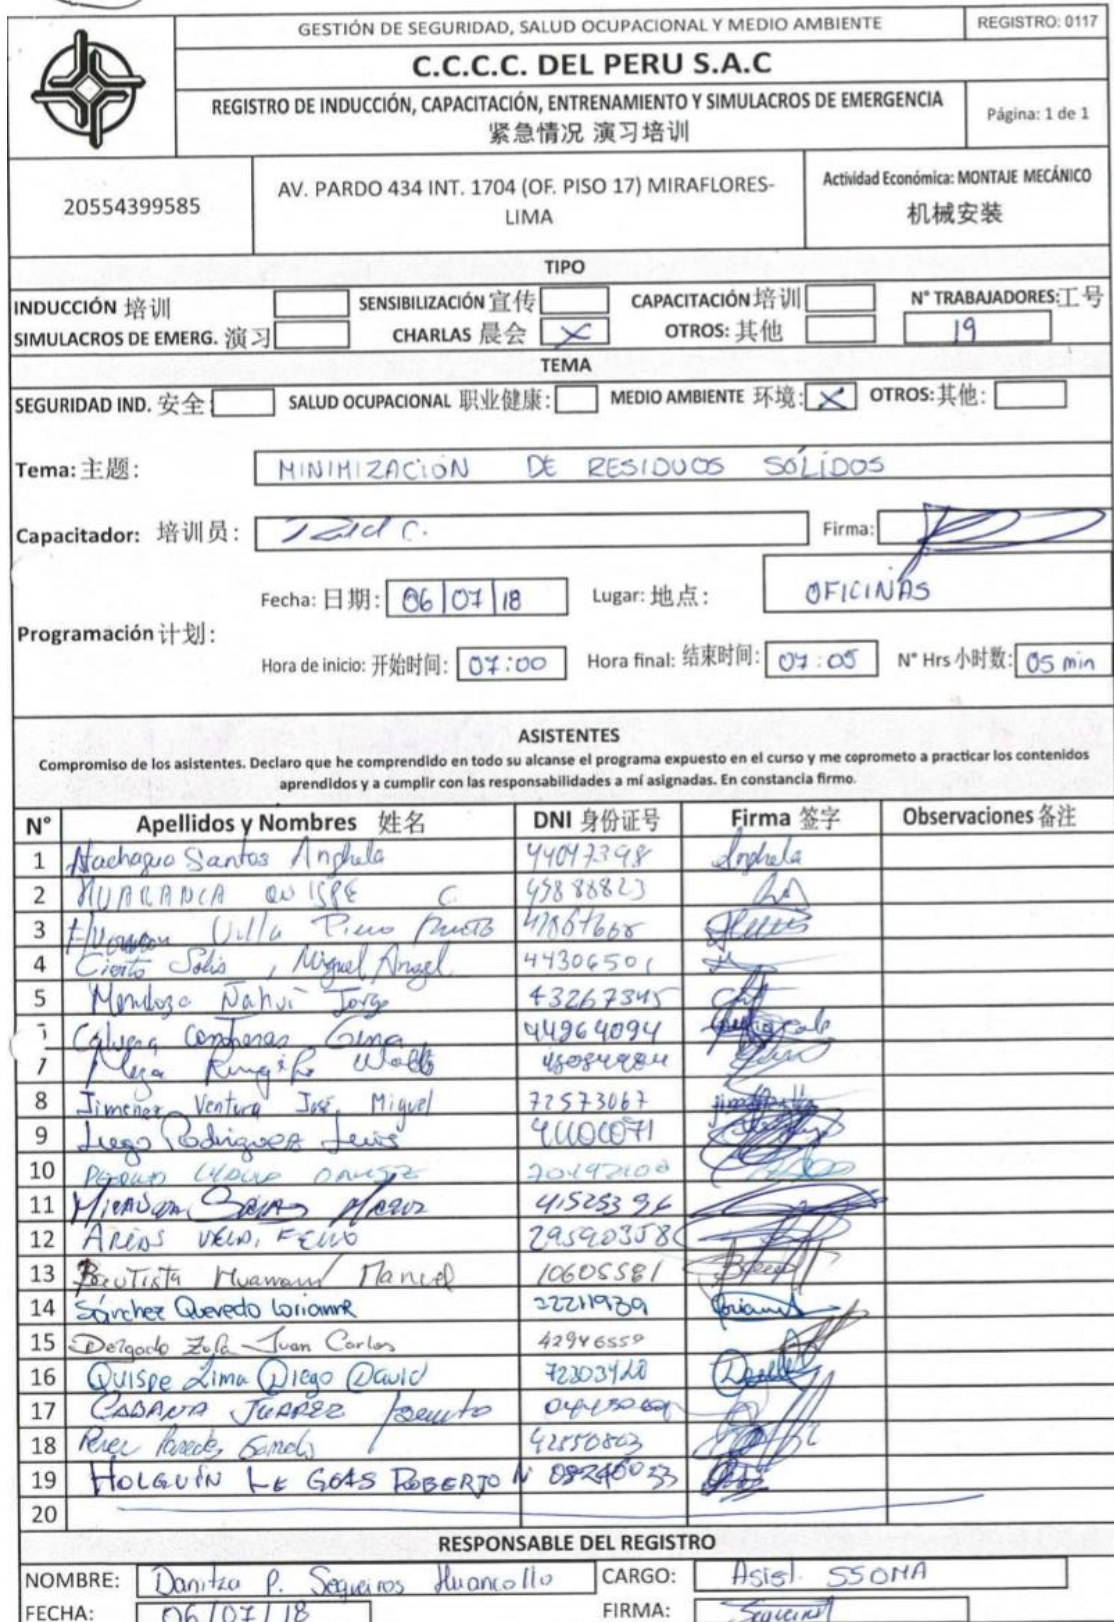 GESTIÓN DE SEGURIDAD, SALUD OCUPACIONAL Y MEDIO AMBIENTE
REGISTRO: 0117
C.C.C.C. DEL PERU S.A.C
REGISTRO DE INDUCCIÓN, CAPACITACIÓN, ENTRENAMIENTO Y SIMULACROS DE EMERGENCIA
紧急情况 演习培训
Página: 1 de 1
20554399585
AV. PARDO 434 INT. 1704 (OF. PISO 17) MIRAFLORES-
LIMA
Actividad Económica: MONTAJE MECÁNICO
机械安装
TIPO
INDUCCIÓN 培训 SENSIBILIZACIÓN 宣传 CAPACITACIÓN 培训 N° TRABAJADORES: 工号
SIMULACROS DE EMERG. 演习 CHARLAS 晨会 X OTROS: 其他 19
TEMA
SEGURIDAD IND. 安全: SALUD OCUPACIONAL 职业健康: MEDIO AMBIENTE 环境: X OTROS: 其他:
Tema: 主题: MINIMIZACIÓN DE RESIDUOS SÓLIDOS
Capacitador: 培训员: C. Firma:
Fecha: 日期: 06 07 18 Lugar: 地点: OFICINAS
Programación 计划:
Hora de inicio: 开始时间: 07:00 Hora final: 结束时间: 07:05 N° Hrs 小时数: 05 min
ASISTENTES
Compromiso de los asistentes. Declaro que he comprendido en todo su alcanse el programa expuesto en el curso y me coprometo a practicar los contenidos
aprendidos y a cumplir con las responsabilidades a mí asignadas. En constancia firmo.
N° Apellidos y Nombres 姓名 DNI 身份证号 Firma 签字 Observaciones 备注
1 Santos Anghela 44047398 Anghela
2 HUARANCA QUISPE C. 45888823
3 Villa Piero
4 Solis, Miguel Angel 44306501
5 Mendoza Ñahui Jorge 43267345
6 Gina 44964094
7 Meza
8 Jimenez Ventura José Miguel 72573067
9 Lugo Rodriguez Luis
10
11 41525396
12 ARIAS 29590358
13 Bautista Huamani Manuel 10605581
14 Sánchez Quevedo Lorianne
15 Delgado Juan Carlos 42946559
16 Quispe Lima Diego David
17 JUAREZ
18 Perez Paredes 42550803
19 HOLGUÍN LE GOAS ROBERTO N
20
RESPONSABLE DEL REGISTRO
NOMBRE: Danitza P. Sequeiros Huancollo CARGO: Asist. SSOMA
FECHA: 06/07/18 FIRMA: